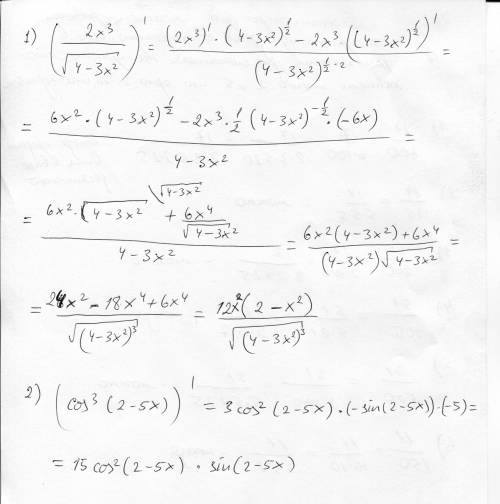 1) (2x³/√(4-3x²))' = ((2x³)'·(4-3x²)^(1/2) - 2x³·((4-3x²)^(1/2))')/(4-3x²)^(1/2·2) =
= (6x²·(4-3x²)^(1/2) - 2x³·1/2(4-3x²)^(-1/2)·(-6x))/(4-3x²) =
= (6x²·√(4-3x²) \√(4-3x²) + 6x⁴/√(4-3x²))/(4-3x²) = (6x²(4-3x²)+6x⁴)/((4-3x²)√(4-3x²)) =
= (24x²-18x⁴+6x⁴)/√((4-3x²)³) = 12x²(2-x²)/√((4-3x²)³)
2) (cos³(2-5x))' = 3cos²(2-5x)·(-sin(2-5x))·(-5)=
= 15cos²(2-5x)·sin(2-5x)